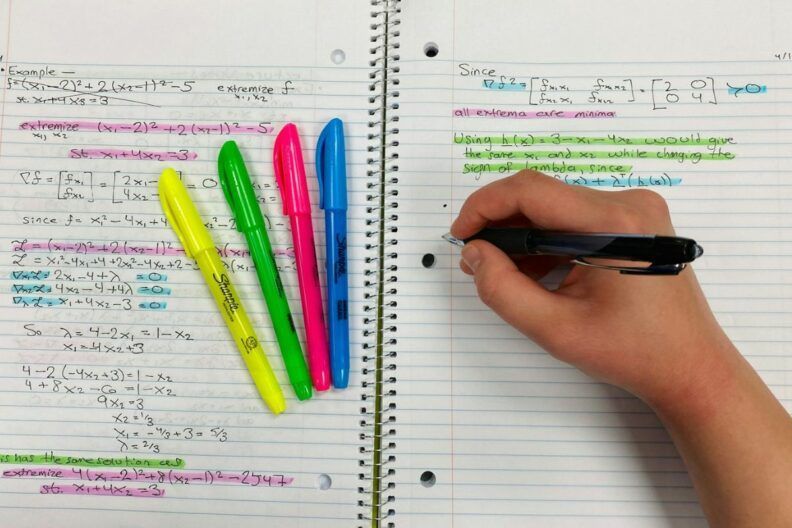 Example —
f=(x₁-2)²+2(x₂-1)²-5 extremize f
x₁, x₂
st. x₁+4x₂=3
extremize (x₁-2)²+2(x₂-1)²-5
x₁, x₂
st. x₁+4x₂=3
∇f = [fx₁ fx₂] = [2x₁- 4x₂ = 0
since f= x₁²-4x₁+4
ℒ = (x₁-2)²+2(x₂-1)²
ℒ = x₁²-4x₁+4+2x₂²-4x₂+2-
∇x₁ℒ= 2x₁-4+λ =0
∇x₂ℒ= 4x₂-4+4λ =0
∇λℒ= x₁+4x₂-3 =0
So λ=4-2x₁=1-x₂
x₁=-4x₂+3
4-2(-4x₂+3)=1-x₂
4+8x₂-6=1-x₂
9x₂=3
x₂=1/3
x₁=-4/3+3=5/3
λ=2/3
is has the same solution as
extremize 4(x₁-2)²+8(x₂-1)²-2547
st. x₁+4x₂=3
4/1
Since
∇f² = [fx₁x₁ fx₁x₂ fx₂x₁ fx₂x₂] = [2 0 0 4] >0
all extrema are minima
Using h(x)=3-x₁-4x₂ would give
the same x₁ and x₂ while changing the
sign of lambda, since
(x)+λᵀ(h(x))
Sharpie
Sharpie